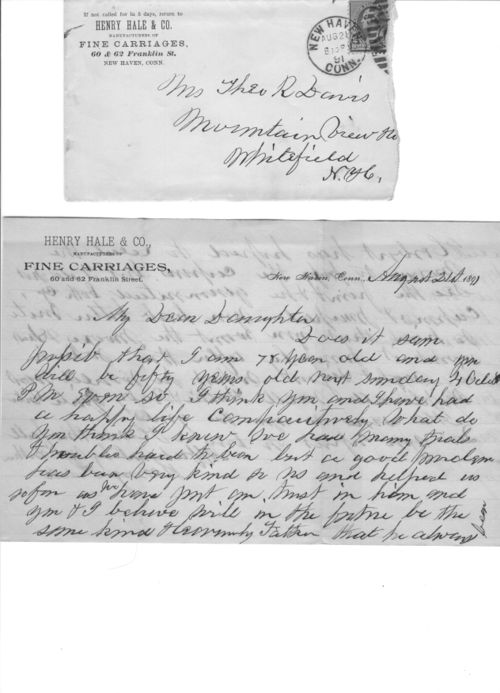 If not called for in 5 days, return to
HENRY HALE & CO.
MANUFACTURERS OF
FINE CARRIAGES,
60 & 62 Franklin St.
NEW HAVEN, CONN.
NEW HAVEN
AUG 21
91
CONN.
Ms Theo R Davis
Mountain View
Whitefield
N.H.
HENRY HALE & CO.,
MANUFACTURERS OF
FINE CARRIAGES,
60 and 62 Franklin Street.
New Haven, Conn., August 21st 1891
My Dear Daughter
Does it seem
possib that I am 78 years old and you
will be fifty years old next sunday 4 Oclock
P.M. Even so. I think you and I have had
a happy life Comparitively. What do
you think I have had many trials
& troubles hard to bear but a good
has been very kind to us and helped us
so far as we have put our trust in him and
you & I believe will in the future be the
same kind Heavenly Father that he always
been